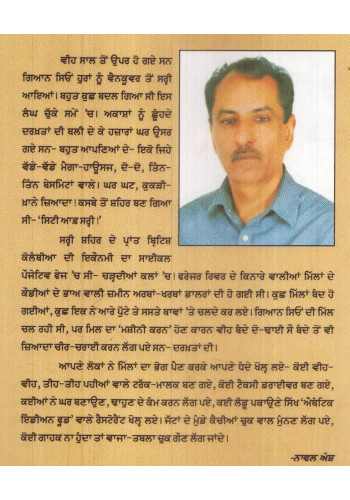 ਵੀਹ ਸਾਲ ਤੋਂ ਉਪਰ ਹੋ ਗਏ ਸਨ
ਗਿਆਨ ਸਿਓਂ ਹੁਰਾਂ ਨੂੰ ਵੈਨਕੂਵਰ ਤੋਂ ਸਰੀ੍
ਆਇਆਂ। ਬਹੁਤ ਕੁਛ ਬਦਲ ਗਿਆ ਸੀ ਇਸ
ਲੰਘ ਚੁੱਕੇ ਸਮੇਂ 'ਚ। ਅਕਾਸ਼ਾਂ ਨੂੰ ਛੂੰਹਦੇ
ਦਰਖ਼ਤਾਂ ਦੀ ਬਲੀ ਦੇ ਕੇ ਹਜ਼ਾਰਾਂ ਘਰ ਉਸਰ
ਗਏ ਸਨ- ਬਹੁਤ ਆਪਣਿਆਂ ਦੇ- ਇਕੋ ਜਿਹੇ
ਵੱਡੇ-ਵੱਡੇ ਮੈਗਾ-ਹਾਊਸਜ਼, ਦੋ-ਦੋ, ਤਿੰਨ-
ਤਿੰਨ ਬੇਸਮਿੰਟਾਂ ਵਾਲੇ। ਘਰ ਘਟ, ਕੁਕੜੀ-
ਖ਼ਾਨੇ ਜ਼ਿਆਦਾ! ਕਸਬੇ ਤੋਂ ਸ਼ਹਿਰ ਬਣ ਗਿਆ
ਸੀ- 'ਸਿਟੀ ਆਫ਼ ਸਰੀ੍।'
ਸਰੀ੍ ਸ਼ਹਿਰ ਦੇ ਪ੍ਰਾਂਤ ਬ੍ਰਿਟਿਸ਼
ਕੋਲੰਬੀਆ ਦੀ ਇਕੌਨਮੀ ਦਾ ਸਾਈਕਲ
ਪੌਜੇਟਿਵ ਫੇਜ 'ਚ ਸੀ- ਚੜ੍ਹਦੀਆਂ ਕਲਾਂ 'ਚ! ਫਰੇਜਰ ਰਿਵਰ ਦੇ ਕਿਨਾਰੇ ਵਾਲੀਆਂ ਮਿੱਲਾਂ ਦੇ
ਕੌਡੀਆਂ ਦੇ ਭਾਅ ਵਾਲੀ ਜ਼ਮੀਨ ਅਰਬਾਂ-ਖਰਬਾਂ ਡਾਲਰਾਂ ਦੀ ਹੋ ਗਈ ਸੀ। ਕੁਛ ਮਿੱਲਾਂ ਬੰਦ ਹੋ
ਗਈਆਂ, ਕੁਛ ਇਕ ਨੇ ਆਰੇ ਪੁੱਟੇ ਤੇ ਸਸਤੇ ਥਾਵਾਂ 'ਤੇ ਚਲਦੇ ਕਰ ਲਏ। ਗਿਆਨ ਸਿਓਂ ਦੀ ਮਿੱਲ
ਚਲ ਰਹੀ ਸੀ, ਪਰ ਮਿਲ ਦਾ 'ਮਸ਼ੀਨੀ ਕਰਨ' ਹੋਣ ਕਾਰਨ ਵੀਹ ਬੰਦੇ ਦੋ-ਢਾਈ ਸੌ ਬੰਦੇ ਤੋਂ ਵੀ
ਜ਼ਿਆਦਾ ਚੀਰ-ਚਰਾਈ ਕਰਨ ਲੱਗ ਪਏ ਸਨ- ਦਰਖ਼ਤਾਂ ਦੀ।
ਆਪਣੇ ਲੋਕਾਂ ਨੇ ਮਿੱਲਾਂ ਦਾ ਭੋਗ ਪੈਣ ਕਰਕੇ ਆਪਣੇ ਧੰਦੇ ਖੋਲ੍ਹ ਲਏ- ਕੋਈ ਵੀਹ-
ਵੀਹ, ਤੀਹ-ਤੀਹ ਪਹੀਆਂ ਵਾਲੇ ਟਰੱਕ-ਮਾਲਕ ਬਣ ਗਏ, ਕੋਈ ਟੈਕਸੀ ਡਰਾਈਵਰ ਬਣ ਗਏ,
ਕਈਆਂ ਨੇ ਘਰ ਬਣਾਉਣ, ਢਾਹੁਣ ਦੇ ਕੰਮ ਕਰਨ ਲੱਗ ਪਏ, ਕਈ ਲੰਡੂ ਪਕਾਉਣੇ ਸਿੱਖ 'ਐਥੰਟਿਕ
ਇੰਡੀਅਨ ਫੂਡ' ਵਾਲੇ ਰੈਸਟੋਰੈਂਟ ਖੋਲ੍ਹ ਲਏ। ਜੱਟਾਂ ਦੇ ਮੁੰਡੇ ਕੈਂਚੀਆਂ ਚੁਕ ਵਾਲ ਮੁੰਨਣ ਲੱਗ ਪਏ,
ਕੋਈ ਗਾਹਕ ਨਾ ਹੁੰਦਾ ਤਾਂ ਵਾਜਾ-ਤਬਲਾ ਚੁਕ ਗੌਣ ਲੱਗ ਜਾਂਦੇ।
-ਨਾਵਲ ਅੰਸ਼